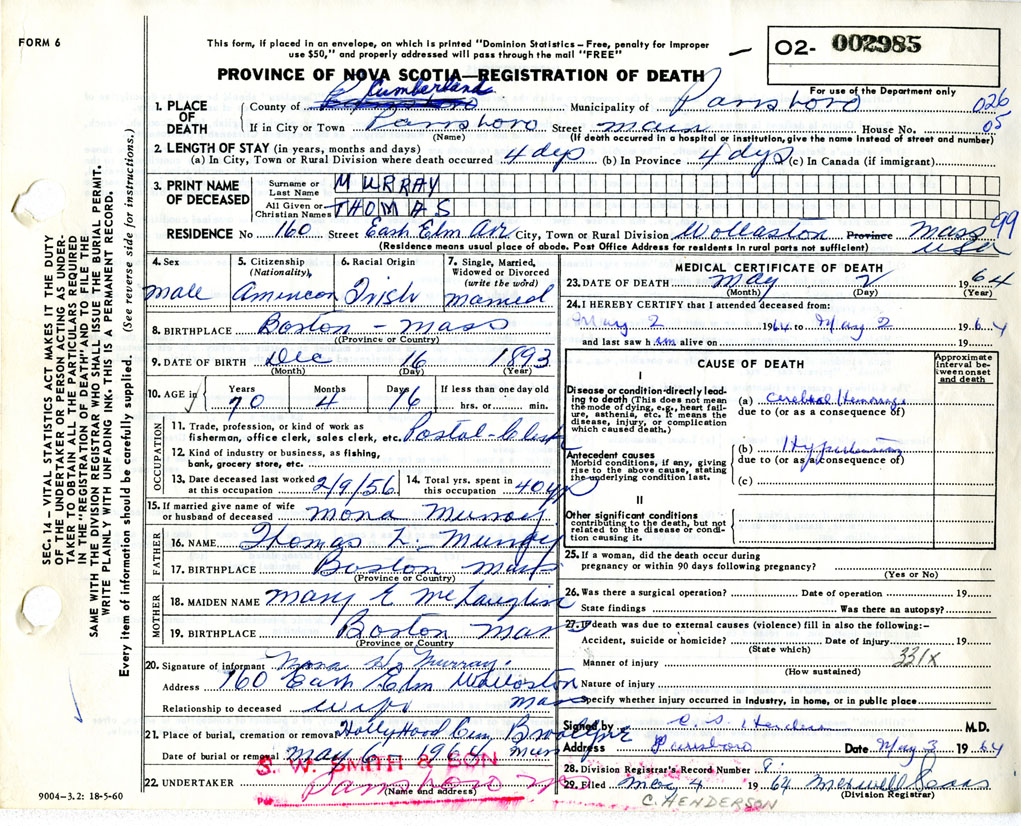 FORM 6
This form, if placed in an envelope, on which is printed "Dominion Statistics – Free, penalty for improper
use $50," and properly addressed will pass through the mail "FREE"
02- 002985
For use of the Department only
PROVINCE OF NOVA SCOTIA—REGISTRATION OF DEATH
SEC. 14 – VITAL STATISTICS ACT MAKES IT THE DUTY
OF THE UNDERTAKER OR PERSON ACTING AS UNDER-
TAKER "TO OBTAIN ALL THE PARTICULARS REQUIRED
IN THE "REGISTRATION OF DEATH" AND TO FILE THE
SAME WITH THE DIVISION REGISTRAR WHO SHALL ISSUE THE BURIAL PERMIT.
WRITE PLAINLY WITH UNFADING INK – THIS IS A PERMANENT RECORD.
Every item of information should be carefully supplied. (See reverse side for instructions.)
1. PLACE OF DEATH
County of Cumberland Municipality of Parrsboro 026
If in City or Town Parrsboro Street main House No. 05
(Name) (If death occurred in a hospital or institution, give the name instead of street and number)
2. LENGTH OF STAY (in years, months and days)
(a) In City, Town or Rural Division where death occurred 4 dys (b) In Province 4 dys (c) In Canada (if immigrant)
3. PRINT NAME OF DECEASED
Surname or Last Name MURRAY
All Given or Christian Names THOMAS
RESIDENCE No 160 Street East Elm Av City, Town or Rural Division Wollaston Province Mass 99
USA
(Residence means usual place of abode. Post Office Address for residents in rural parts not sufficient)
4. Sex
male
5. Citizenship (Nationality)
American
6. Racial Origin
Irish
7. Single, Married, Widowed or Divorced (write the word)
married
8. BIRTHPLACE Boston – mass
(Province or Country)
9. DATE OF BIRTH Dec 16 1893
(Month) (Day) (Year)
10. AGE in Years 70 Months 4 Days 16 If less than one day old
hrs. or min.
OCCUPATION
11. Trade, profession, or kind of work as
fisherman, office clerk, sales clerk, etc. Postal Clerk
12. Kind of industry or business, as fishing,
bank, grocery store, etc.
13. Date deceased last worked at this occupation 2/9/56 14. Total yrs. spent in this occupation 40 yrs
15. If married give name of wife
or husband of deceased Mona Murray
FATHER
16. NAME Thomas L. Murray
17. BIRTHPLACE Boston Mass
(Province or Country)
MOTHER
18. MAIDEN NAME Mary E McLauglin
19. BIRTHPLACE Boston Mass
(Province or Country
20. Signature of informant Mona Murray.
Address 160 East Elm Wollaston
Relationship to deceased wife mass
21. Place of burial, cremation or removal HollyHood Cem
Date of burial or removal May 6 1964
22. UNDERTAKER S. W. SMITH & SON
Parrsboro NS
(Name and address)
9004–3.2: 18-5-60
MEDICAL CERTIFICATE OF DEATH
23. DATE OF DEATH May 2 1964
(Month) (Day) (Year)
24. I HEREBY CERTIFY that I attended deceased from:
May 2 1964 to May 2 1964
and last saw him alive on 19
CAUSE OF DEATH
Approximate interval between onset and death
I
Disease or condition directly lead-
ing to death (This does not mean
the mode of dying, e.g., heart fail-
ure, asthenia, etc. It means the
disease, injury, or complication
which caused death.)
(a) Cerebral Hemorrage
due to (or as a consequence of)
Antecedent causes
Morbid conditions, if any, giving
rise to the above cause, stating
the underlying condition last.
(b) Hypertension
due to (or as a consequence of)
(c)
II
Other significant conditions
contributing to the death, but not
related to the disease or condi-
tion causing it.
25. If a woman, did the death occur during
pregnancy or within 90 days following pregnancy?
(Yes or No)
26. Was there a surgical operation? Date of operation 19
State findings Was there an autopsy?
27. If death was due to external causes (violence) fill in also the following:–
Accident, suicide or homicide? Date of injury 19
(State which)
331X
Manner of injury
(How sustained)
Nature of injury
Specify whether injury occurred in industry, in home, or in public place
Signed by M.D.
Address Parrsboro Date May 3 1964
28. Division Registrar's Record Number
29. Filed May 4 1964
(Division Registrar)
C. HENDERSON